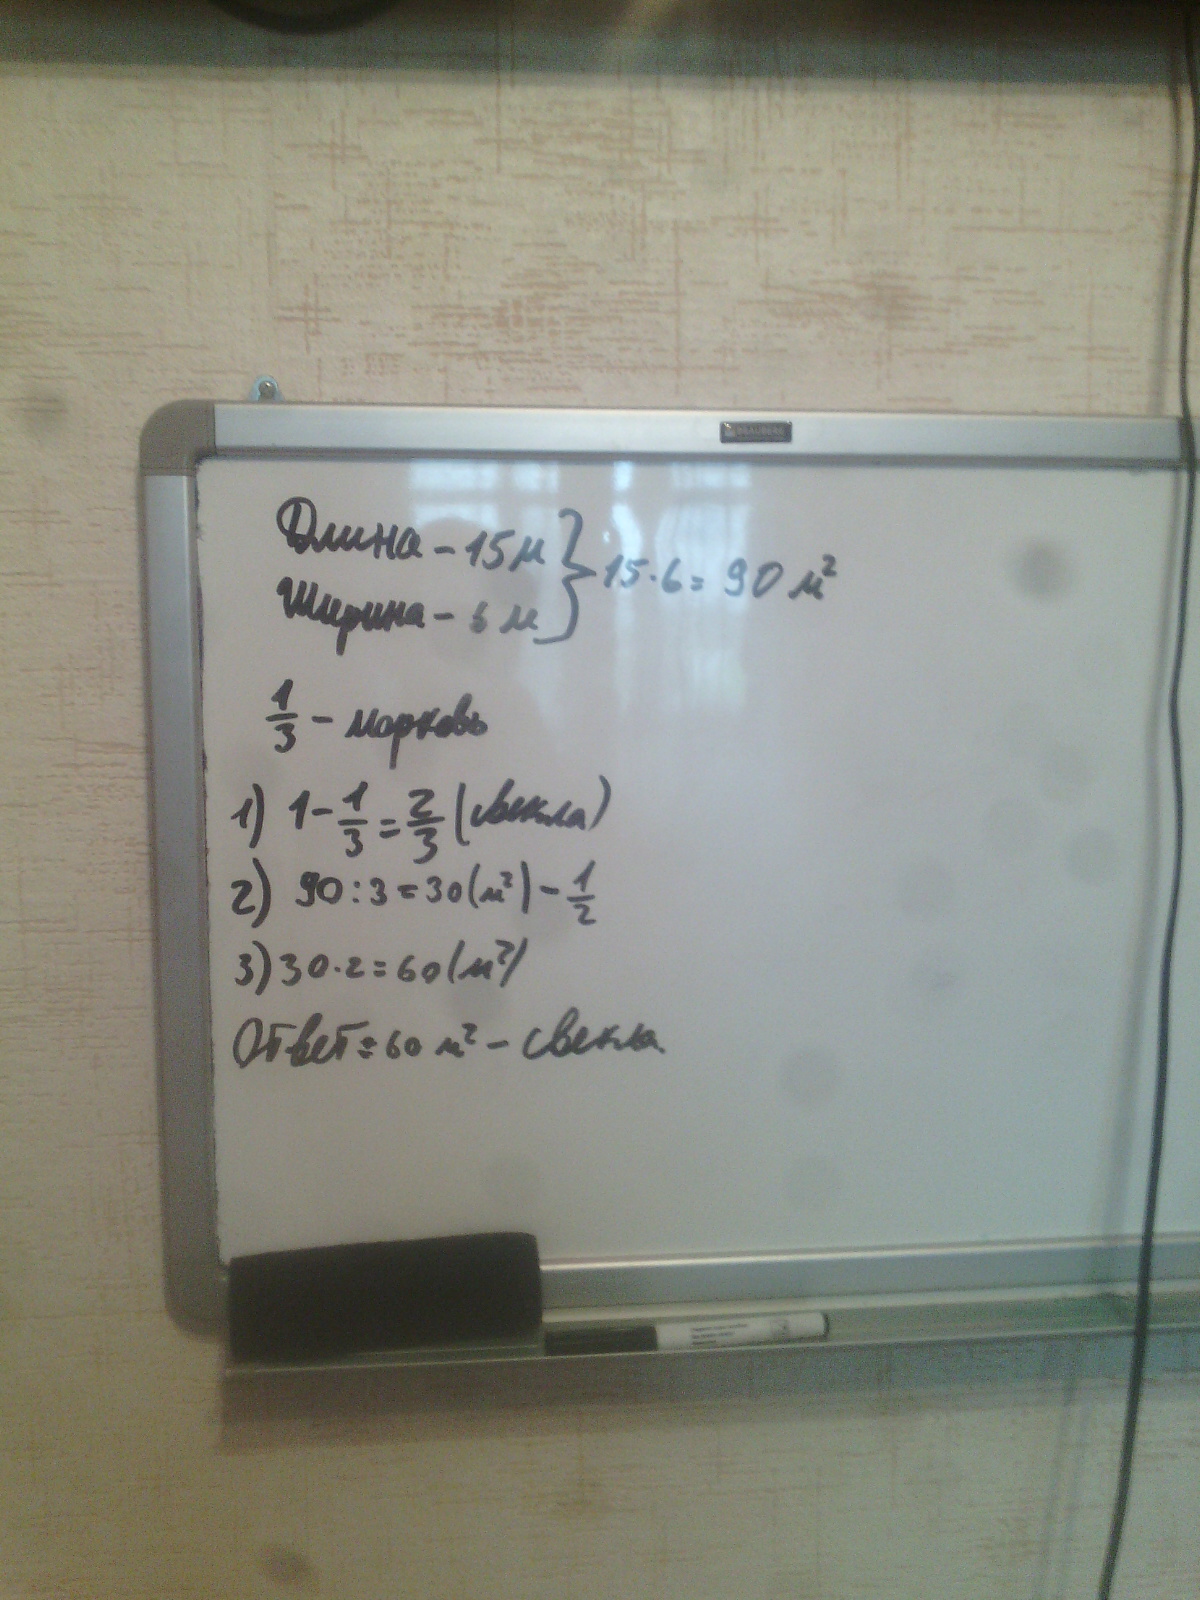 BRAUBERG
Длина - 15 м
Ширина - 6 м
15·6 = 90 м²
1/3 - морковь
1) 1 - 1/3 = 2/3 (свекла)
2) 90 : 3 = 30 (м²) - 1/2
3) 30·2 = 60 (м²)
Ответ: 60 м² - свекла